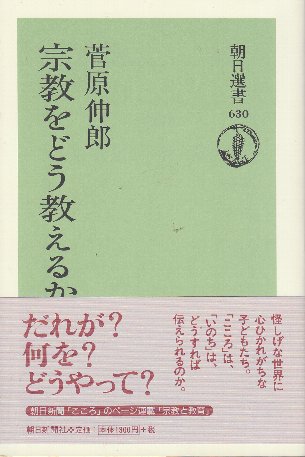 朝日選書
630
菅原伸郎
宗教をどう教えるか
怪しげな世界に
心ひかれがちな
子どもたち。
「こころ」は、
「いのち」は、
どうすれば
伝えられるのか。
だれが?
何を?
どうやって?
朝日新聞「こころ」のページ連載「宗教と教育」
朝日新聞社●定価:本体1300円+税